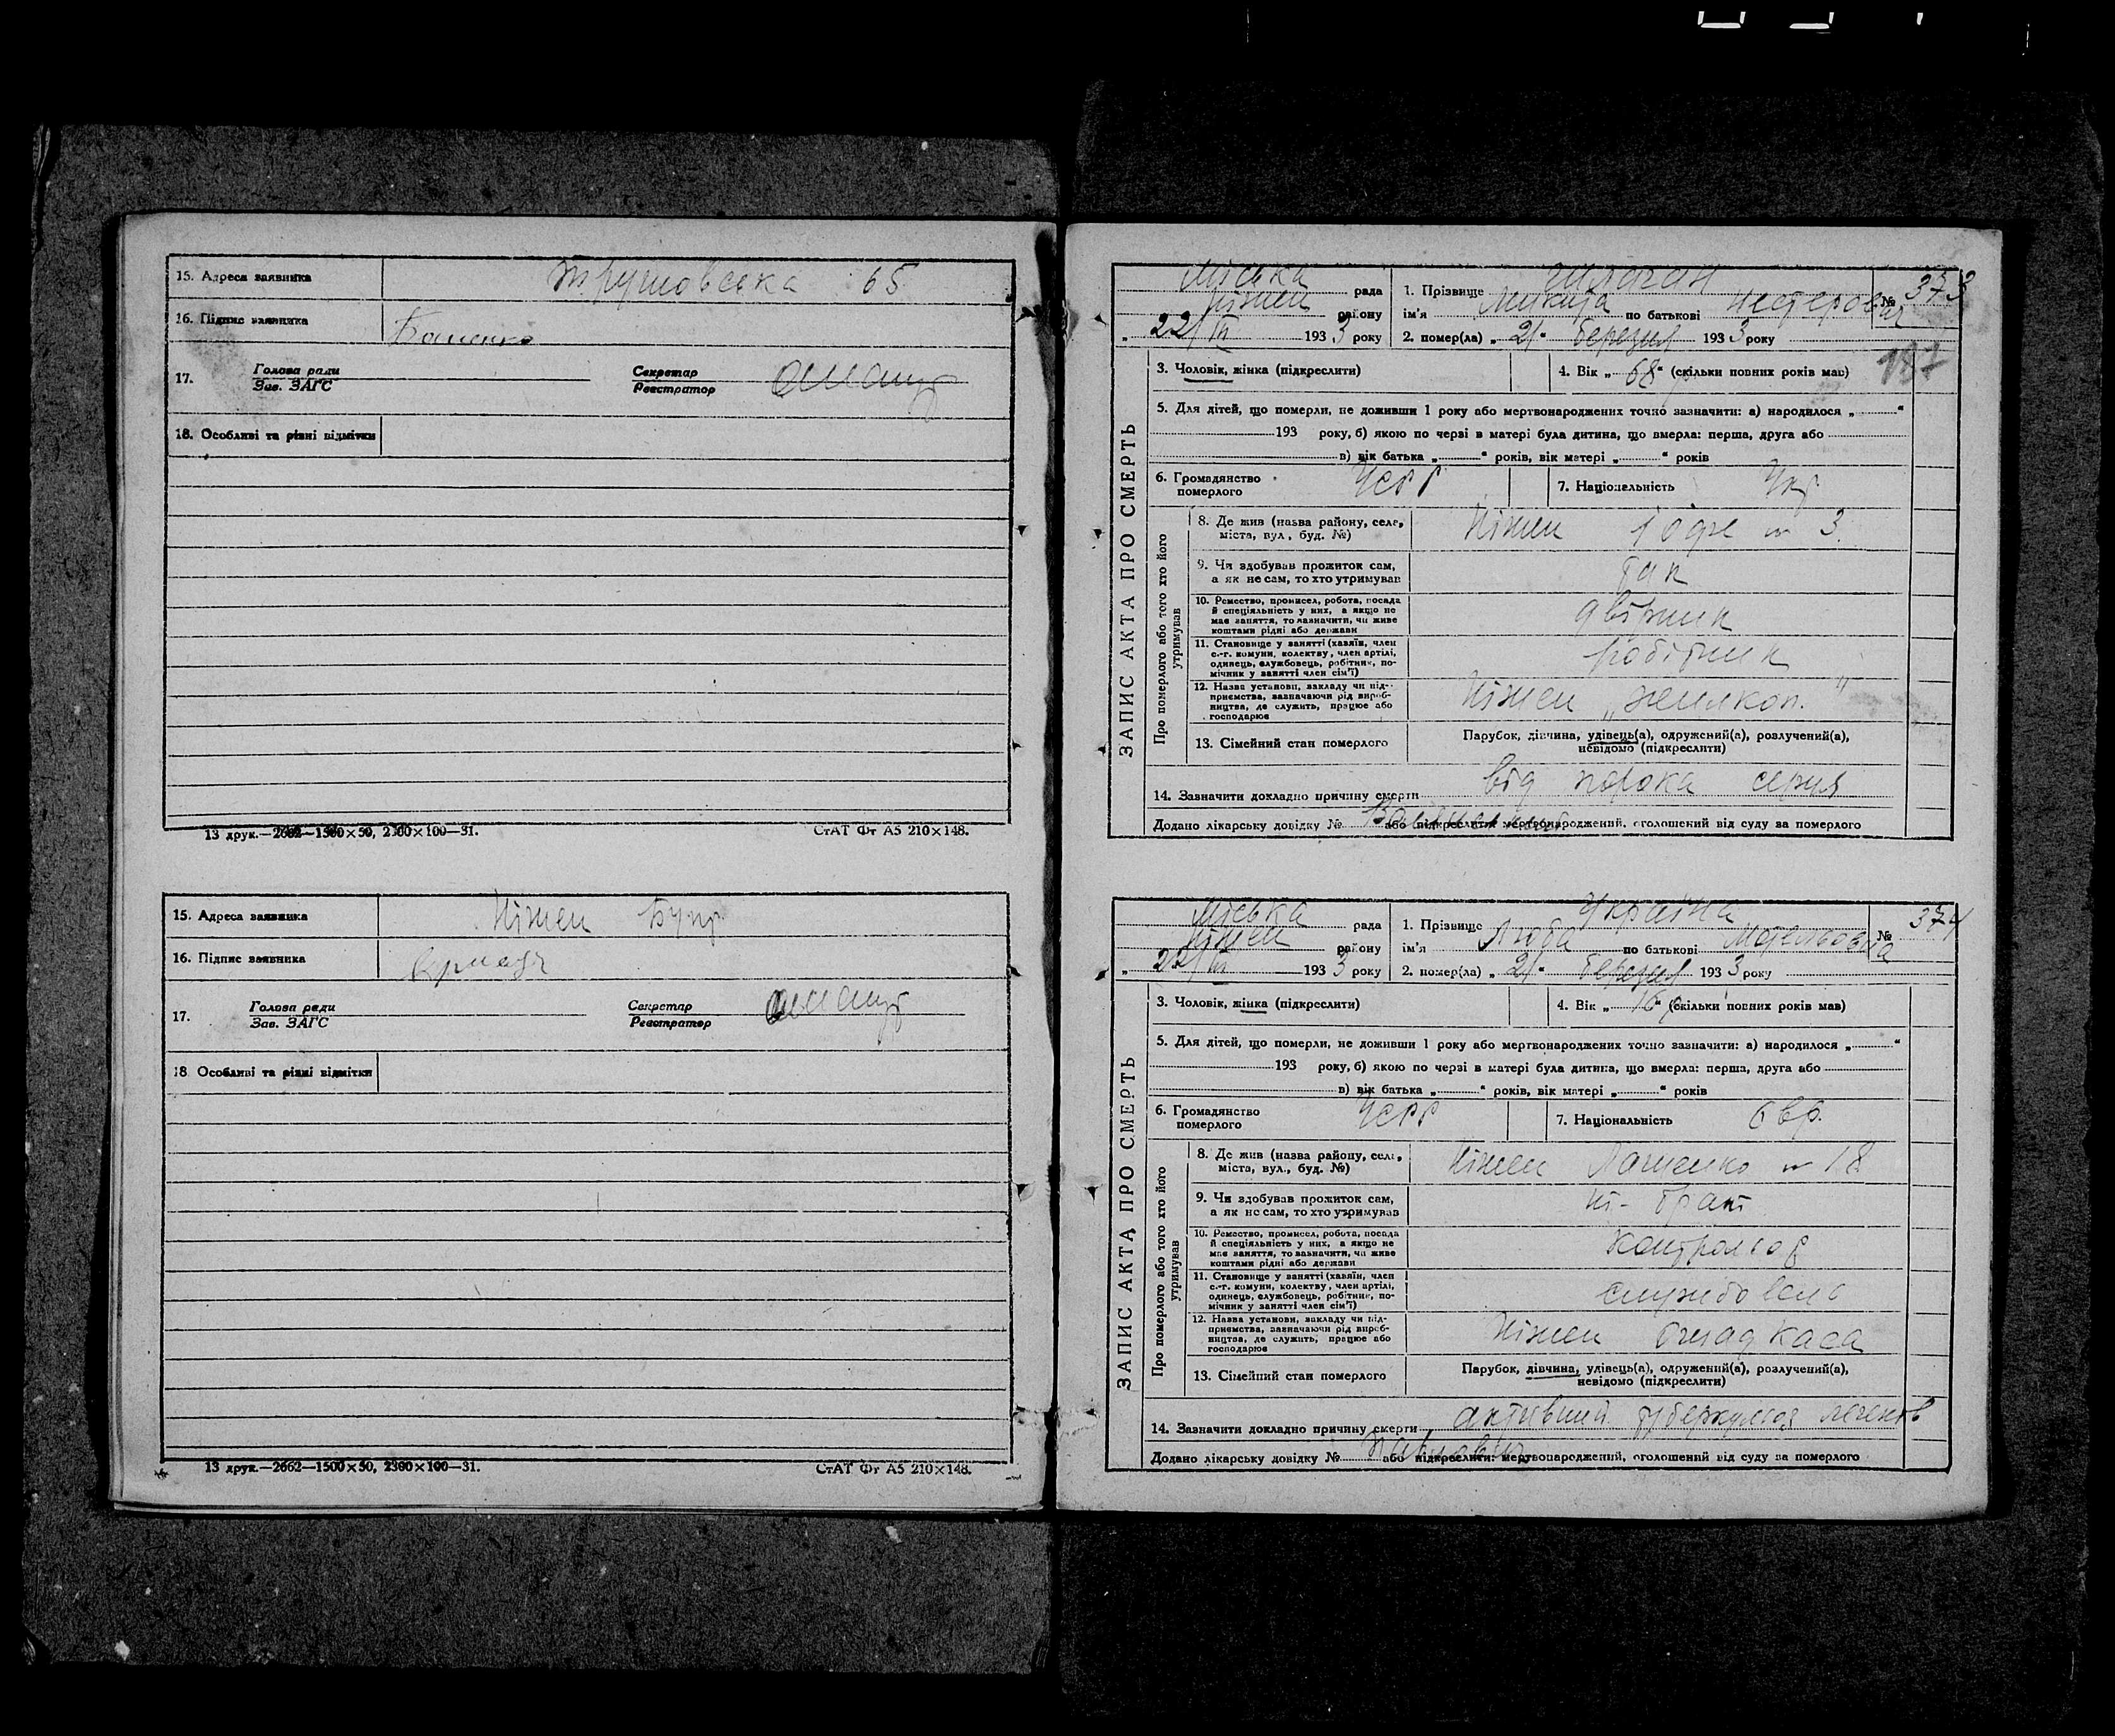 15. Адреса заявника 65
16. Підпис заявника
17. Голова ради Зав. ЗАГС Секретар Реєстратор
18. Особливі та різні відмітки
13 друк.—2662—1500×50, 2300×100—31. СтАТ Фт А5 210×148.
15. Адреса заявника Ніжен
16. Підпис заявника
17. Голова ради Зав. ЗАГС Секретар Реєстратор
18 Особливі та різні відмітки
13 друк.—2662—1500×50, 2300×100—31. СтАТ Фт А5 210×148.
ЗАПИС АКТА ПРО СМЕРТЬ
Міська рада 1. Прізвище № 373
Ніжен району ім'я Микита по батькові Нестерович
„ 22/III 1933 року 2. помер(ла) „ 21 “ березня 1933 року
187
3. Чоловік, жінка (підкреслити) 4. Вік „ 68 “ (скільки повних років мав)
5. Для дітей, що померли, не доживши 1 року або мертвонароджених точно зазначити: а) народилося „ “
193 року, б) якою по черзі в матері була дитина, що вмерла: перша, друга або
в) вік батька „ “ років, вік матері „ “ років
6. Громадянство померлого УСРР 7. Національність Укр
Про померлого або того хто його утримував
8. Де жив (назва району, села, міста, вул., буд. №) Ніжен 3
9. Чи здобував прожиток сам, а як не сам, то хто утримував так
10. Ремество, промисел, робота, посада й спеціяльність у них, а якщо не має заняття, то зазначити, чи живе коштами рідні або держави двірник
11. Становище у занятті (хазяїн, член с.-г. комуни, колективу, член артілі, одинець, службовець, робітник, помічник у занятті член сім'ї) робітник
12. Назва установи, закладу чи підприємства, зазначаючи рід виробництва, де служить, працює або господарює Ніжен
13. Сімейний стан померлого Парубок, дівчина, удівець(а), одружений(а), розлучений(а), невідомо (підкреслити)
14. Зазначити докладно причину смерти від порока серця
Додано лікарську довідку № або підкреслити: мертвонароджений, оголошений від суду за померлого
ЗАПИС АКТА ПРО СМЕРТЬ
Міська рада 1. Прізвище Україна № 374
Ніжен району ім'я Люба по батькові
„ 22/III 1933 року 2. помер(ла) „ 21 “ березня 1933 року
3. Чоловік, жінка (підкреслити) 4. Вік „ 16 “ (скільки повних років мав)
5. Для дітей, що померли, не доживши 1 року або мертвонароджених точно зазначити: а) народилося „ “
193 року, б) якою по черзі в матері була дитина, що вмерла: перша, друга або
в) вік батька „ “ років, вік матері „ “ років
6. Громадянство померлого УСРР 7. Національність Євр.
Про померлого або того хто його утримував
8. Де жив (назва району, села, міста, вул., буд. №) Ніжен 18
9. Чи здобував прожиток сам, а як не сам, то хто утримував ні - брат
10. Ремество, промисел, робота, посада й спеціяльність у них, а якщо не має заняття, то зазначити, чи живе коштами рідні або держави контрольор
11. Становище у занятті (хазяїн, член с.-г. комуни, колективу, член артілі, одинець, службовець, робітник, помічник у занятті член сім'ї) службовець
12. Назва установи, закладу чи підприємства, зазначаючи рід виробництва, де служить, працює або господарює Ніжен ощадкаса
13. Сімейний стан померлого Парубок, дівчина, удівець(а), одружений(а), розлучений(а), невідомо (підкреслити)
14. Зазначити докладно причину смерти активний туберкульоз легенів
Додано лікарську довідку № або підкреслити: мертвонароджений, оголошений від суду за померлого